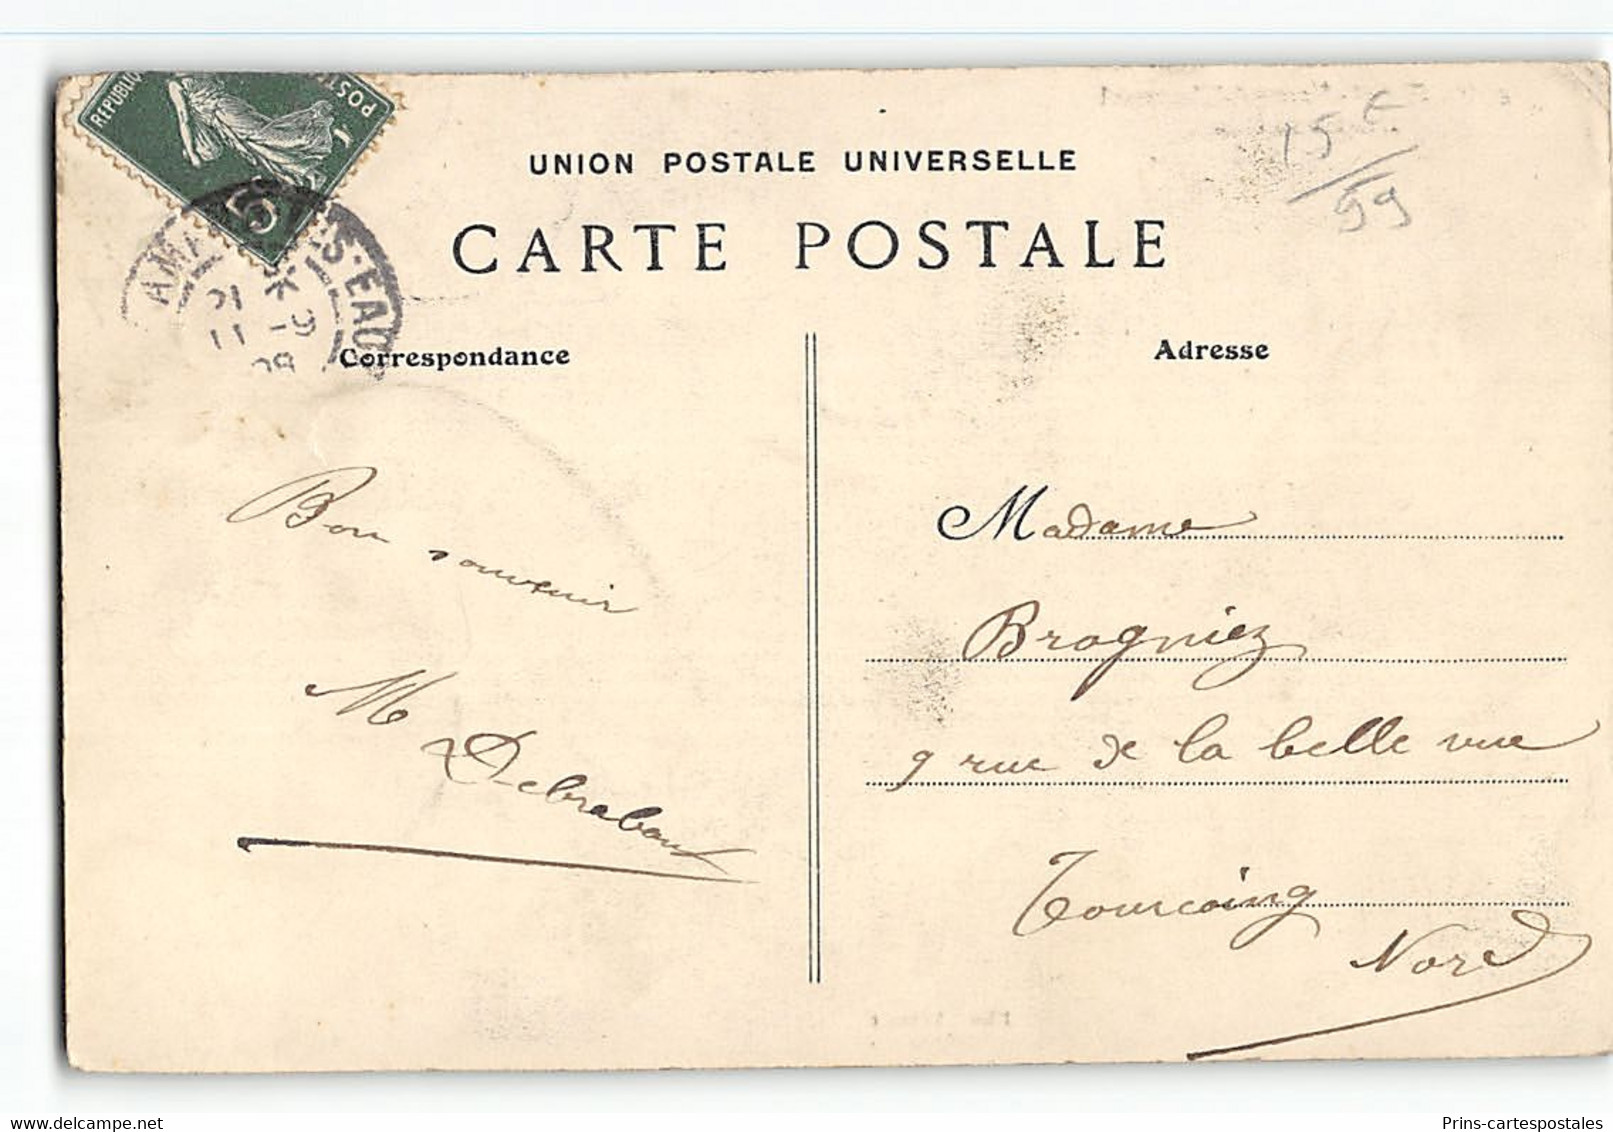 REPUBLIQUE
POSTES
5
ST-AMAND-LES-EAUX
15 €
59
UNION POSTALE UNIVERSELLE
CARTE POSTALE
Correspondance
Adresse
Bon souvenir
M Debrabant
Madame
Brogniez
9 rue de la belle vue
Tourcoing
Nord
Prins-cartespostales